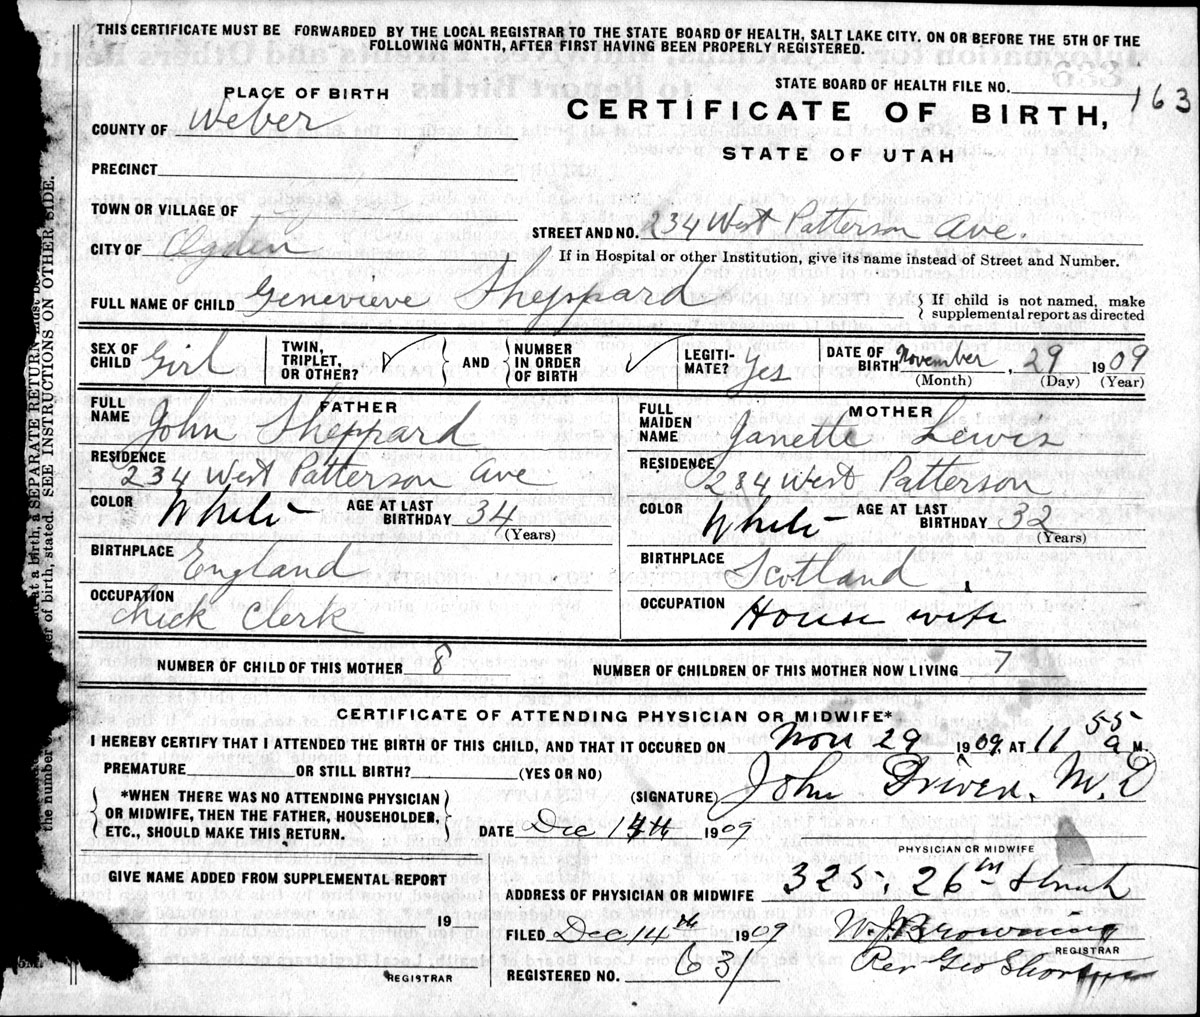 THIS CERTIFICATE MUST BE FORWARDED BY THE LOCAL REGISTRAR TO THE STATE BOARD OF HEALTH, SALT LAKE CITY. ON OR BEFORE THE 5TH OF THE
FOLLOWING MONTH, AFTER FIRST HAVING BEEN PROPERLY REGISTERED.
STATE BOARD OF HEALTH FILE NO. 163
PLACE OF BIRTH
CERTIFICATE OF BIRTH,
COUNTY OF Weber
STATE OF UTAH
PRECINCT
TOWN OR VILLAGE OF
STREET AND NO. 234 West Patterson Ave.
CITY OF Ogden
If in Hospital or other Institution, give its name instead of Street and Number.
FULL NAME OF CHILD Genevieve Sheppard
{ If child is not named, make
supplemental report as directed
SEX OF CHILD Girl
TWIN, TRIPLET, OR OTHER? ✓
AND
NUMBER IN ORDER OF BIRTH ✓
LEGITI-MATE? Yes
DATE OF BIRTH November, 29 1909
(Month) (Day) (Year)
FATHER
FULL NAME John Sheppard
RESIDENCE 234 West Patterson Ave
COLOR White AGE AT LAST BIRTHDAY 34
(Years)
BIRTHPLACE England
OCCUPATION Chick Clerk
MOTHER
FULL MAIDEN NAME Janette Lewis
RESIDENCE 284 West Patterson
COLOR White AGE AT LAST BIRTHDAY 32
(Years)
BIRTHPLACE Scotland
OCCUPATION House wife
NUMBER OF CHILD OF THIS MOTHER 8 NUMBER OF CHILDREN OF THIS MOTHER NOW LIVING 7
CERTIFICATE OF ATTENDING PHYSICIAN OR MIDWIFE*
I HEREBY CERTIFY THAT I ATTENDED THE BIRTH OF THIS CHILD, AND THAT IT OCCURED ON Nov 29 1909. AT 11 55 a M.
PREMATURE OR STILL BIRTH? (YES OR NO)
*WHEN THERE WAS NO ATTENDING PHYSICIAN
OR MIDWIFE, THEN THE FATHER, HOUSEHOLDER,
ETC., SHOULD MAKE THIS RETURN.
(SIGNATURE) John Driver. M.D
DATE Dec 1909
PHYSICIAN OR MIDWIFE
GIVE NAME ADDED FROM SUPPLEMENTAL REPORT
19
REGISTRAR
ADDRESS OF PHYSICIAN OR MIDWIFE 325. 26th Street
FILED Dec 14th 1909 W. J. Browning
REGISTRAR
REGISTERED NO. 631 Per Geo
a SEPARATE RETURN must be
at a birth,
of birth, stated. SEE INSTRUCTIONS ON OTHER SIDE.
the number